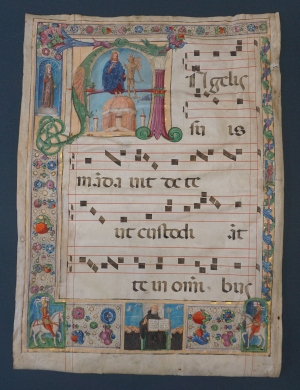 Angelis
su is
māda uit de te
ut custodi āt
te in omi bus